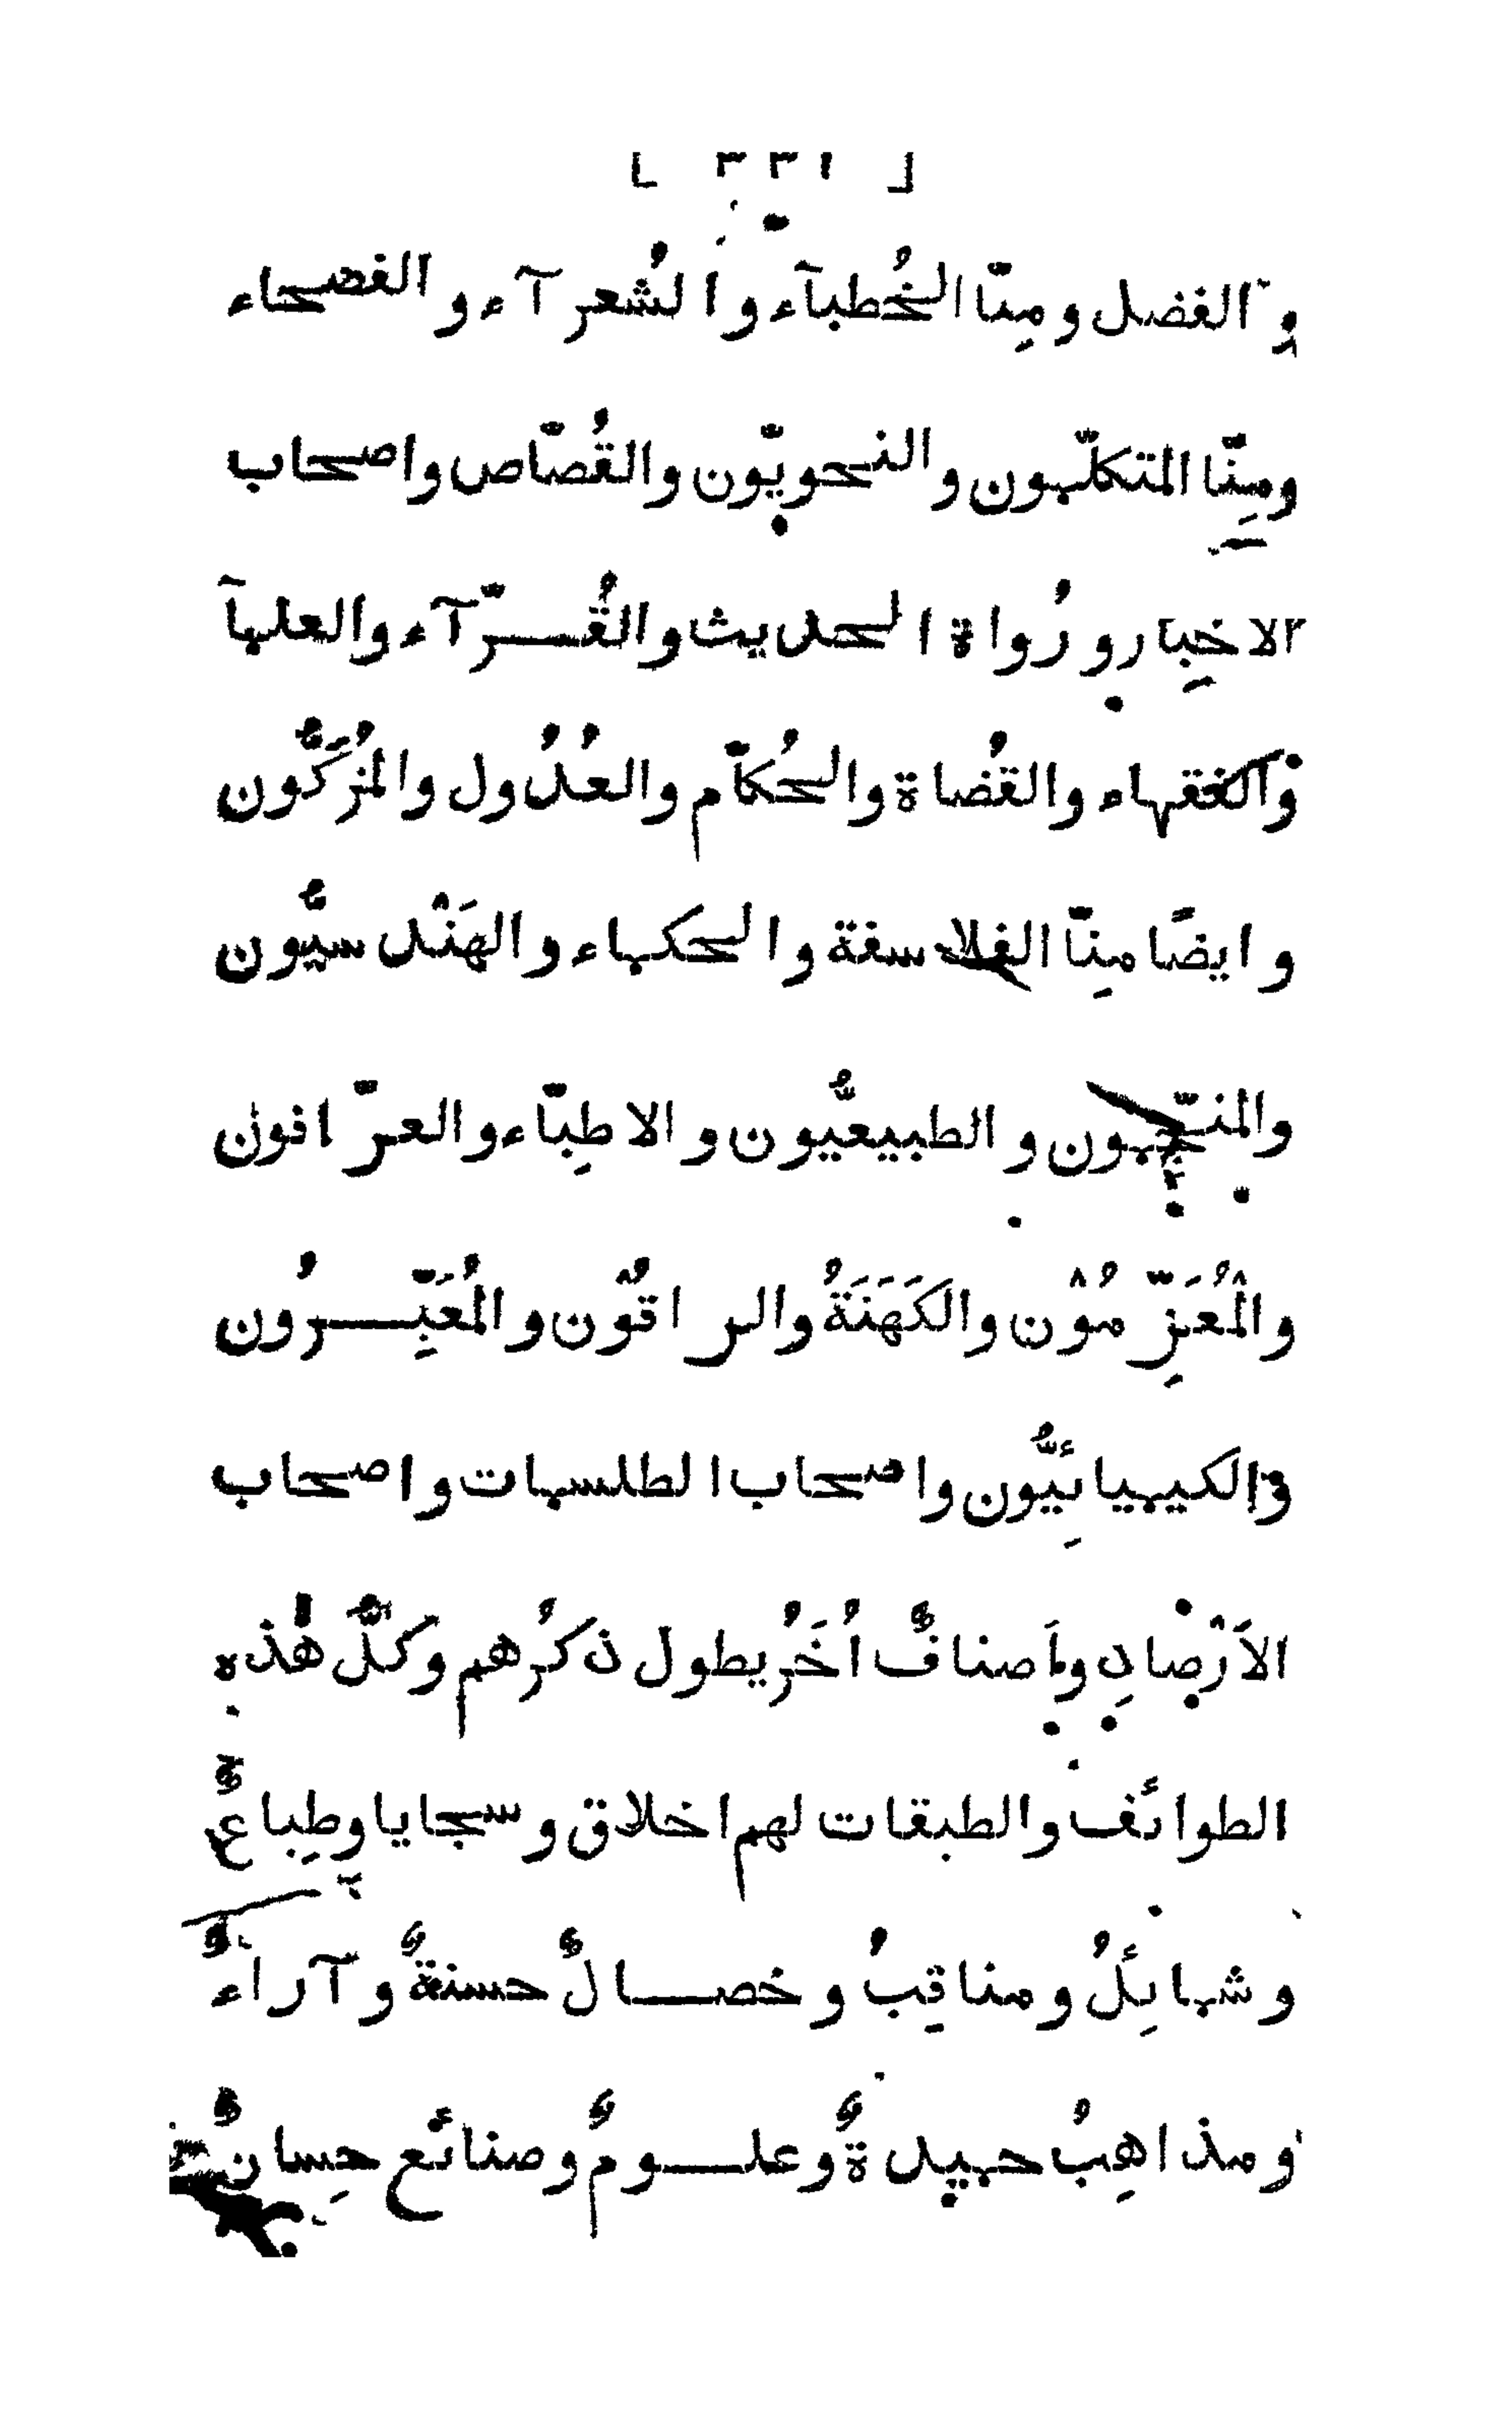 [ ٣٣١ ]
والفضل ومِنّا الخُطبآء والشُعرآء والفصحاء
ومِنّا المتكلّمون والنحويّون والقُصّاص واصحاب
الاخبار ورُواة الحديث والقُرّآء والعلمآ
والفقهاء والقُضاة والحُكّام والعُدُول والمُزَكُّون
وايضًا مِنّا الفلاسفة والحكماء والهَنْدسيُّون
والمنجّمون والطبيعيُّون والاطِبّاء والعرّافون
والْمُعَزِّمُوْن والكَهَنَةُ والراقُوْن والمُعَبِّرُون
والكيميائِيُّون واصحاب الطلسمات واصحاب
الاَرْصادِ واَصنافٌ اُخَرُ يطول ذكرُهم وكلُّ هٰذه
الطوائف والطبقات لهم اخلاق وسجايا وطِباعٌ
وشمائِلُ ومناقِبُ وخصالٌ حسنةٌ وآراءٌ
ومذاهِبُ حميدةٌ وعلومٌ وصنائع حِسانٌ